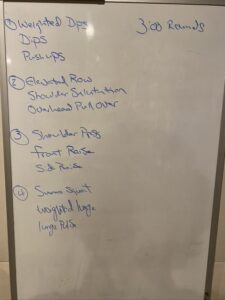 ① Weighted Dips
3:00 Rounds
Dips
Pushups
② Elevated Row
Shoulder Salutation
Overhead Pull Over
③ Shoulder Press
Front Raise
Side Raise
④ Sumo Squat
weighted lunge
lunge Pulse